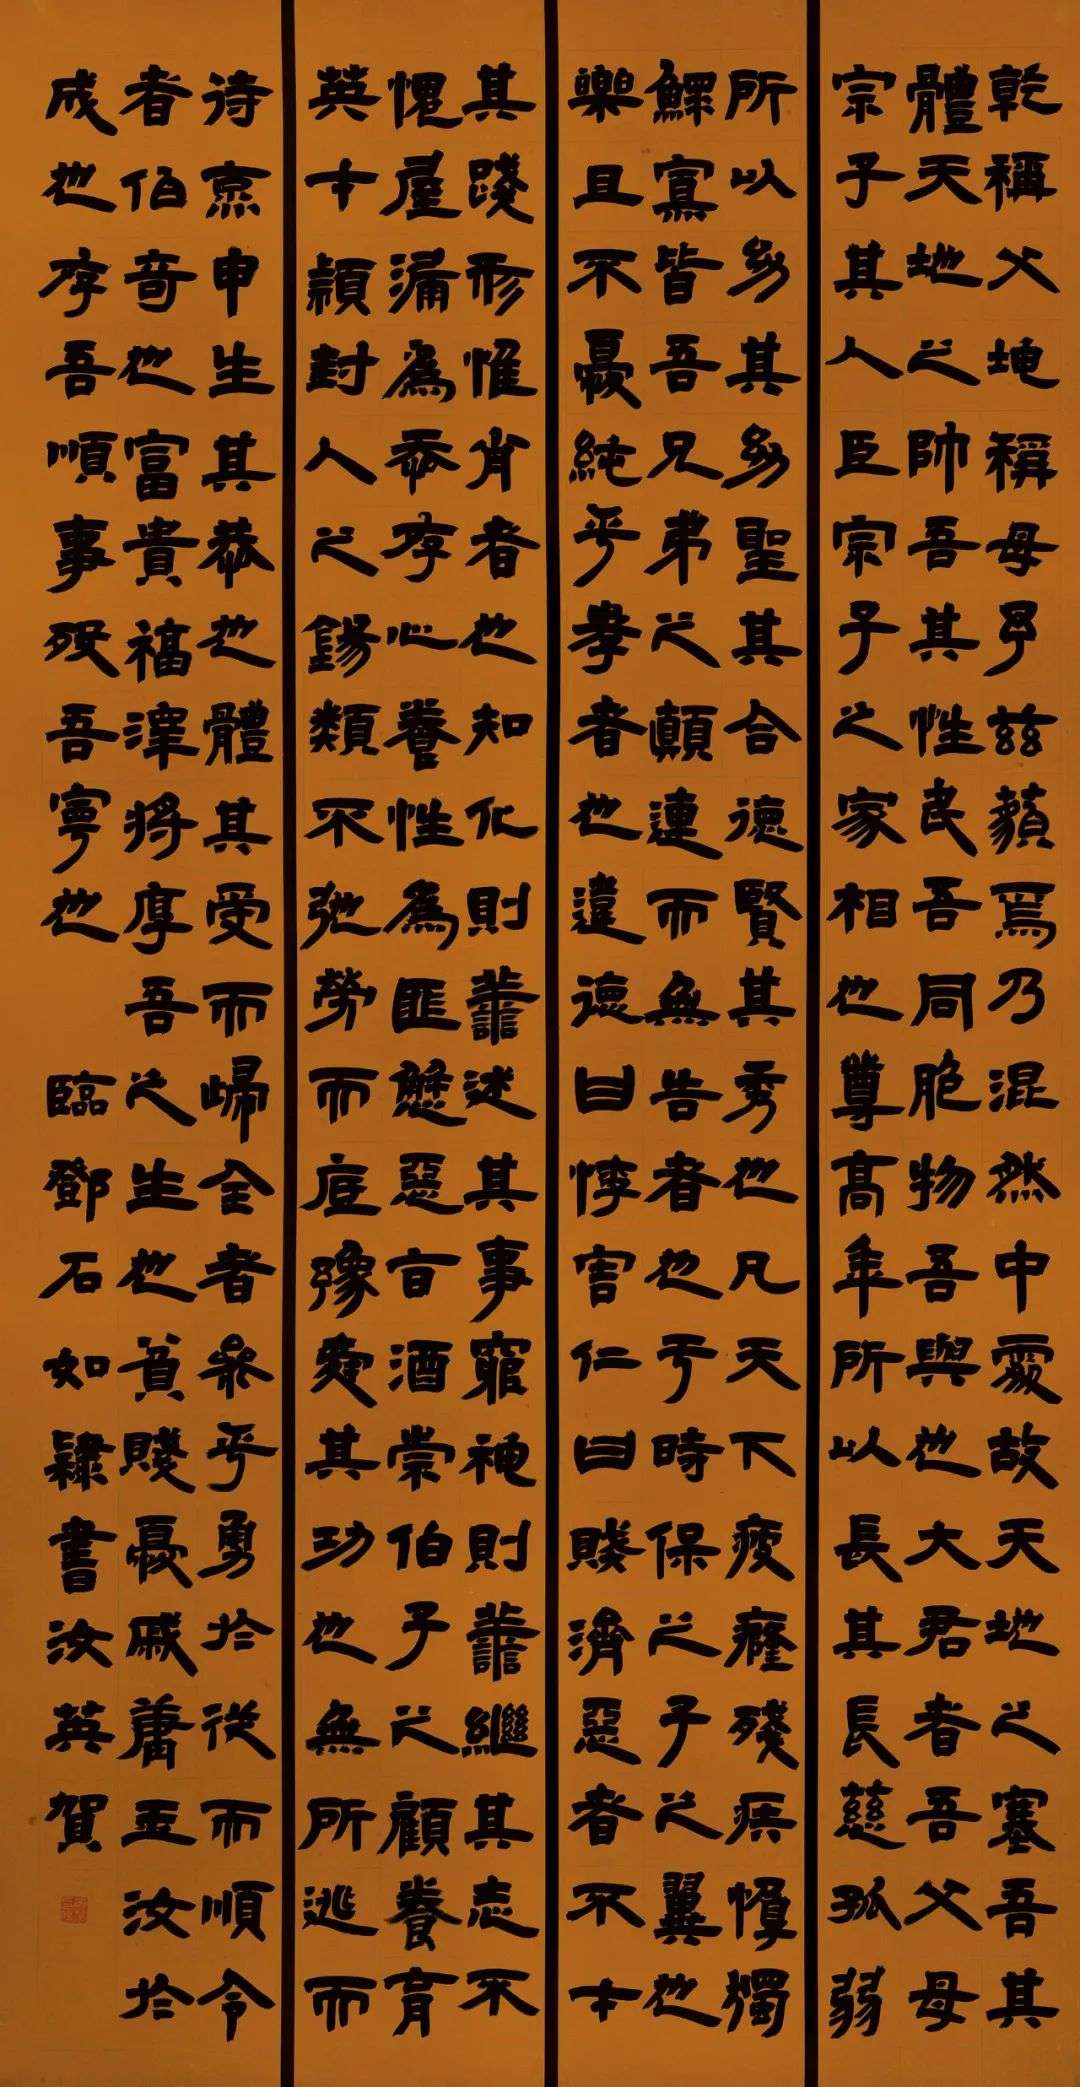 乾稱父坤稱母予兹藐焉乃混然中處故天地之塞吾其
體天地之帥吾其性民吾同胞物吾與也大君者吾父母
宗子其人臣宗子之家相也尊高年所以長其長慈孤弱
所以幼其幼聖其合德賢其秀也凡天下疲癃殘疾惸獨
鰥寡皆吾兄弟之顛連而無告者也于時保之子之翼也
樂且不憂純乎孝者也違德曰悖害仁曰賊濟惡者不才
其踐形惟肖者也知化則善述其事窮神則善繼其志不
愧屋漏為忝存心養性為匪懈惡旨酒崇伯子之顧養育
英才潁封人之錫類不弛勞而底豫舜其功也無所逃而
待烹申生其恭也體其受而歸全者參乎勇於從而順令
者伯奇也富貴福澤將厚吾之生也貧賤憂戚庸玉汝於
成也存吾順事歿吾寧也 臨鄧石如隸書汝英賀